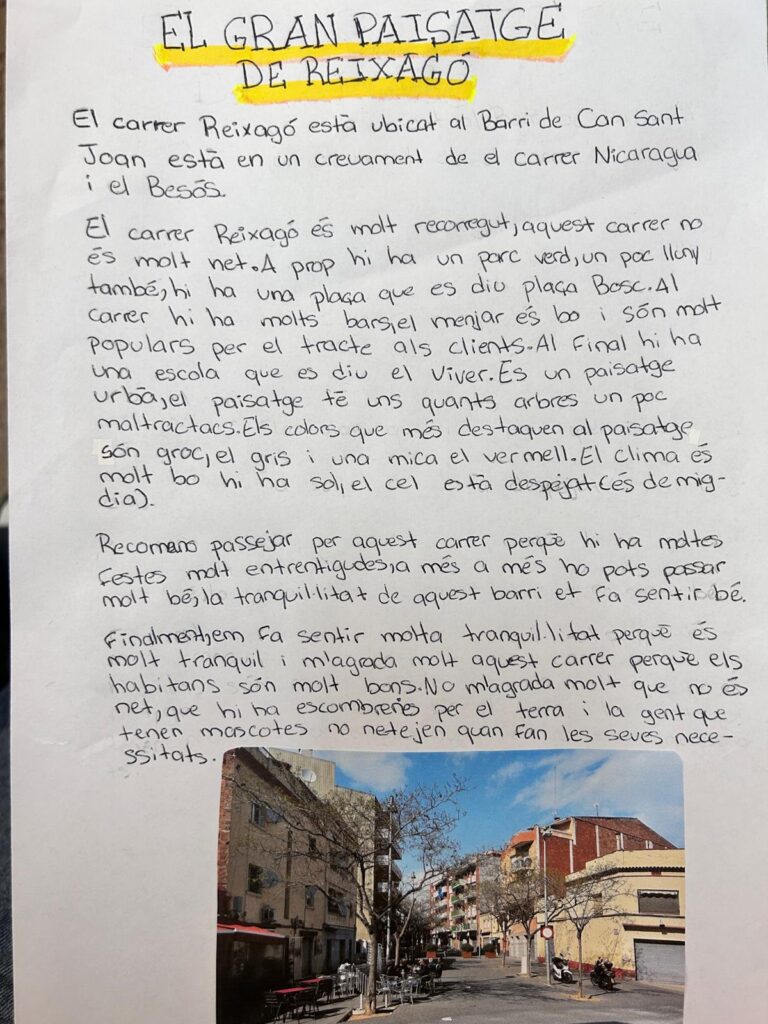 EL GRAN PAISATGE
DE REIXAGÓ
El carrer Reixagó està ubicat al Barri de Can Sant
Joan està en un creuament de el carrer Nicaragua
i el Besós.
El carrer Reixagó és molt recorregut, aquest carrer no
és molt net. A prop hi ha un parc verd, un poc lluny
també, hi ha una plaça que es diu plaça Bosc. Al
carrer hi ha molts bars, el menjar és bo i són molt
populars per el tracte als clients. Al Final hi ha
una escola que es diu el Viver. Es un paisatge
urbà, el paisatge té uns quants arbres un poc
maltractacs. Els colors que més destaquen al paisatge
són groc, el gris i una mica el vermell. El clima és
molt bo hi ha sol, el cel està despejat (és de mig-
dia).
Recomano passejar per aquest carrer perquè hi ha moltes
festes molt entrentigudes, a més a més ho pots passar
molt bé, la tranquil·litat de aquest barri et fa sentir bé.
Finalment, em fa sentir molta tranquil·litat perquè és
molt tranquil i m'agrada molt aquest carrer perquè els
habitans són molt bons. No m'agrada molt que no és
net, que hi ha escombreries per el terra i la gent que
tenen mascotes no netejen quan fan les seves nece-
ssitats.